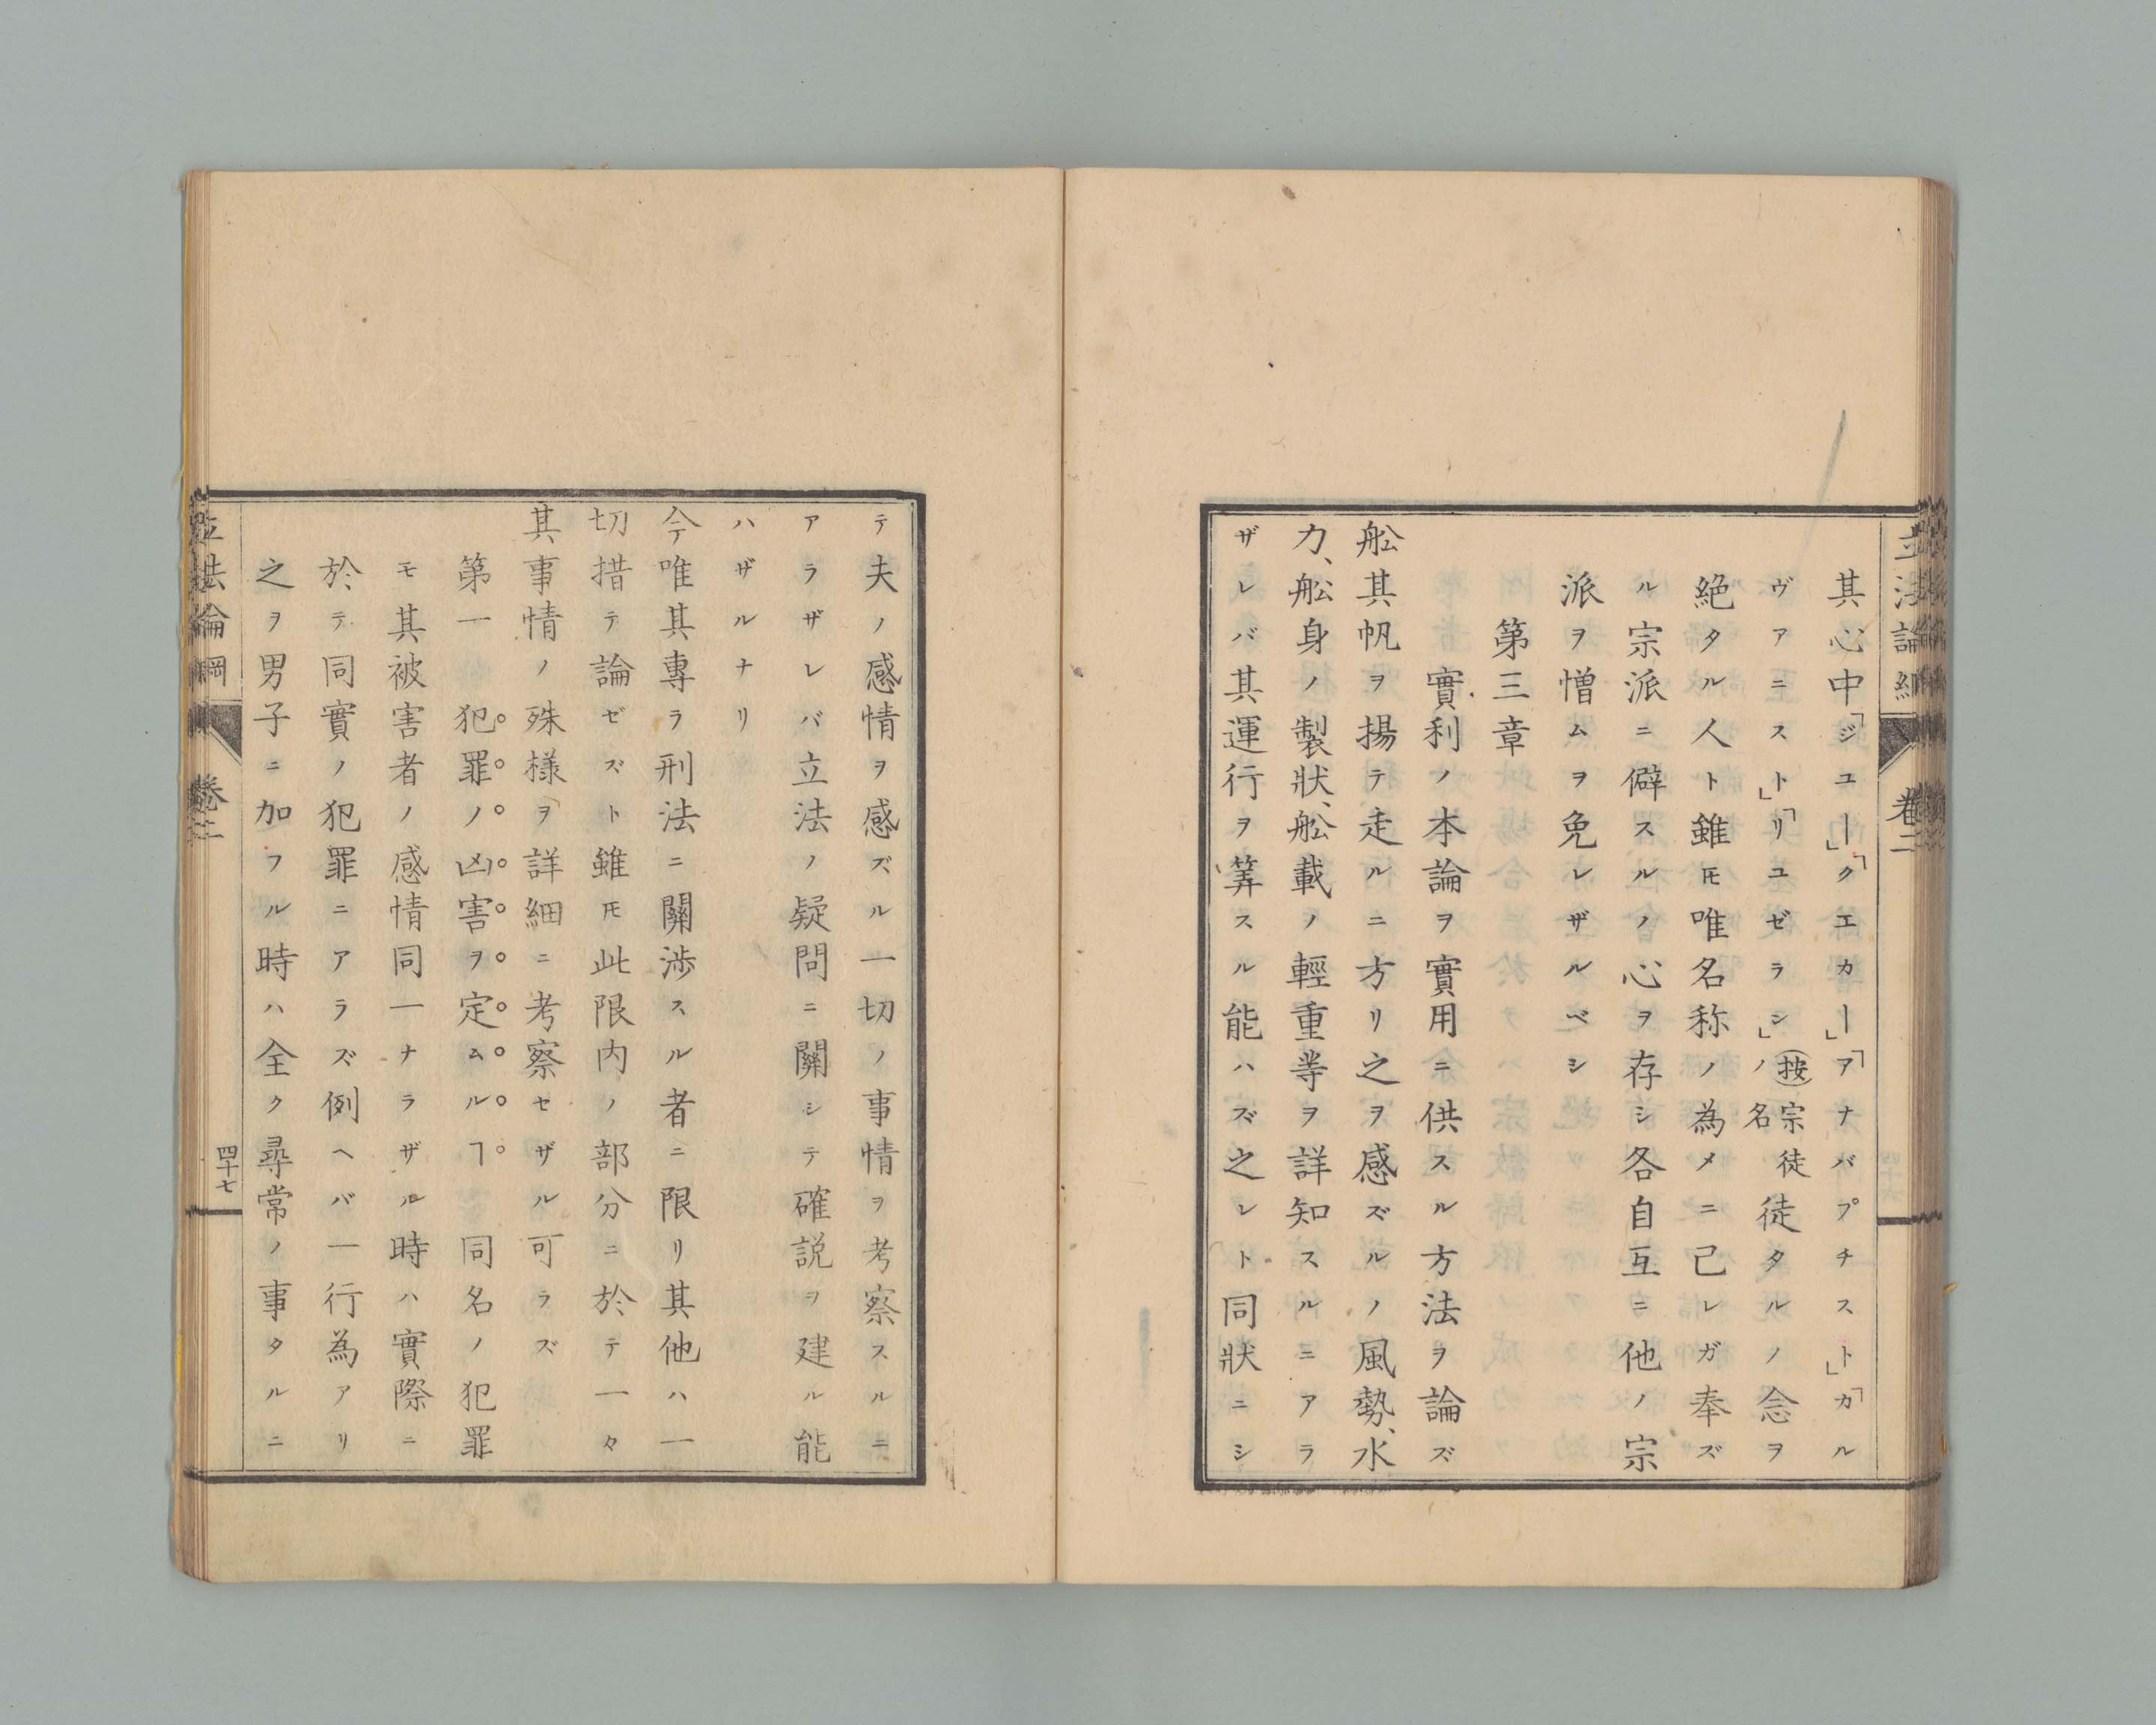 立法論綱 卷二
其心中「ジユー」「クエカー」「アナバプチスト」「カル
ヴアニスト」「リユゼラシ」ノ(按)宗徒名徒タルノ念ヲ
絶タル人ト雖𪜈唯名称ノ為メニ己レガ奉ズ
ル宗派ニ僻スルノ心ヲ存シ各自互ニ他ノ宗
派ヲ憎ムヲ免レザルベシ
第三章
實利ノ本論ヲ實用ニ供スル方法ヲ論ズ
舩其帆ヲ揚テ走ルニ方リ之ヲ感ズルノ風勢、水
力、舩身ノ製狀、舩載ノ輕重等ヲ詳知スルニアラ
ザレバ其運行ヲ筭スル能ハズ之レト同狀ニシ
テ夫ノ感情ヲ感ズル一切ノ事情ヲ考察スルニ
アラザレバ立法ノ疑問ニ關シテ確説ヲ建ル能
ハザルナリ
今唯其專ラ刑法ニ關渉スル者ニ限リ其他ハ一
切措テ論ゼズト雖𪜈此限内ノ部分ニ於テ一々
其事情ノ殊樣ヲ詳細ニ考察セザル可ラズ
第一 犯罪ノ凶害ヲ定ムルヿ 同名ノ犯罪
モ其被害者ノ感情同一ナラザル時ハ實際ニ
於テ同實ノ犯罪ニアラズ例ヘバ一行為アリ
之ヲ男子ニ加フル時ハ全ク尋常ノ事タルニ
立法論綱 卷二 四十七